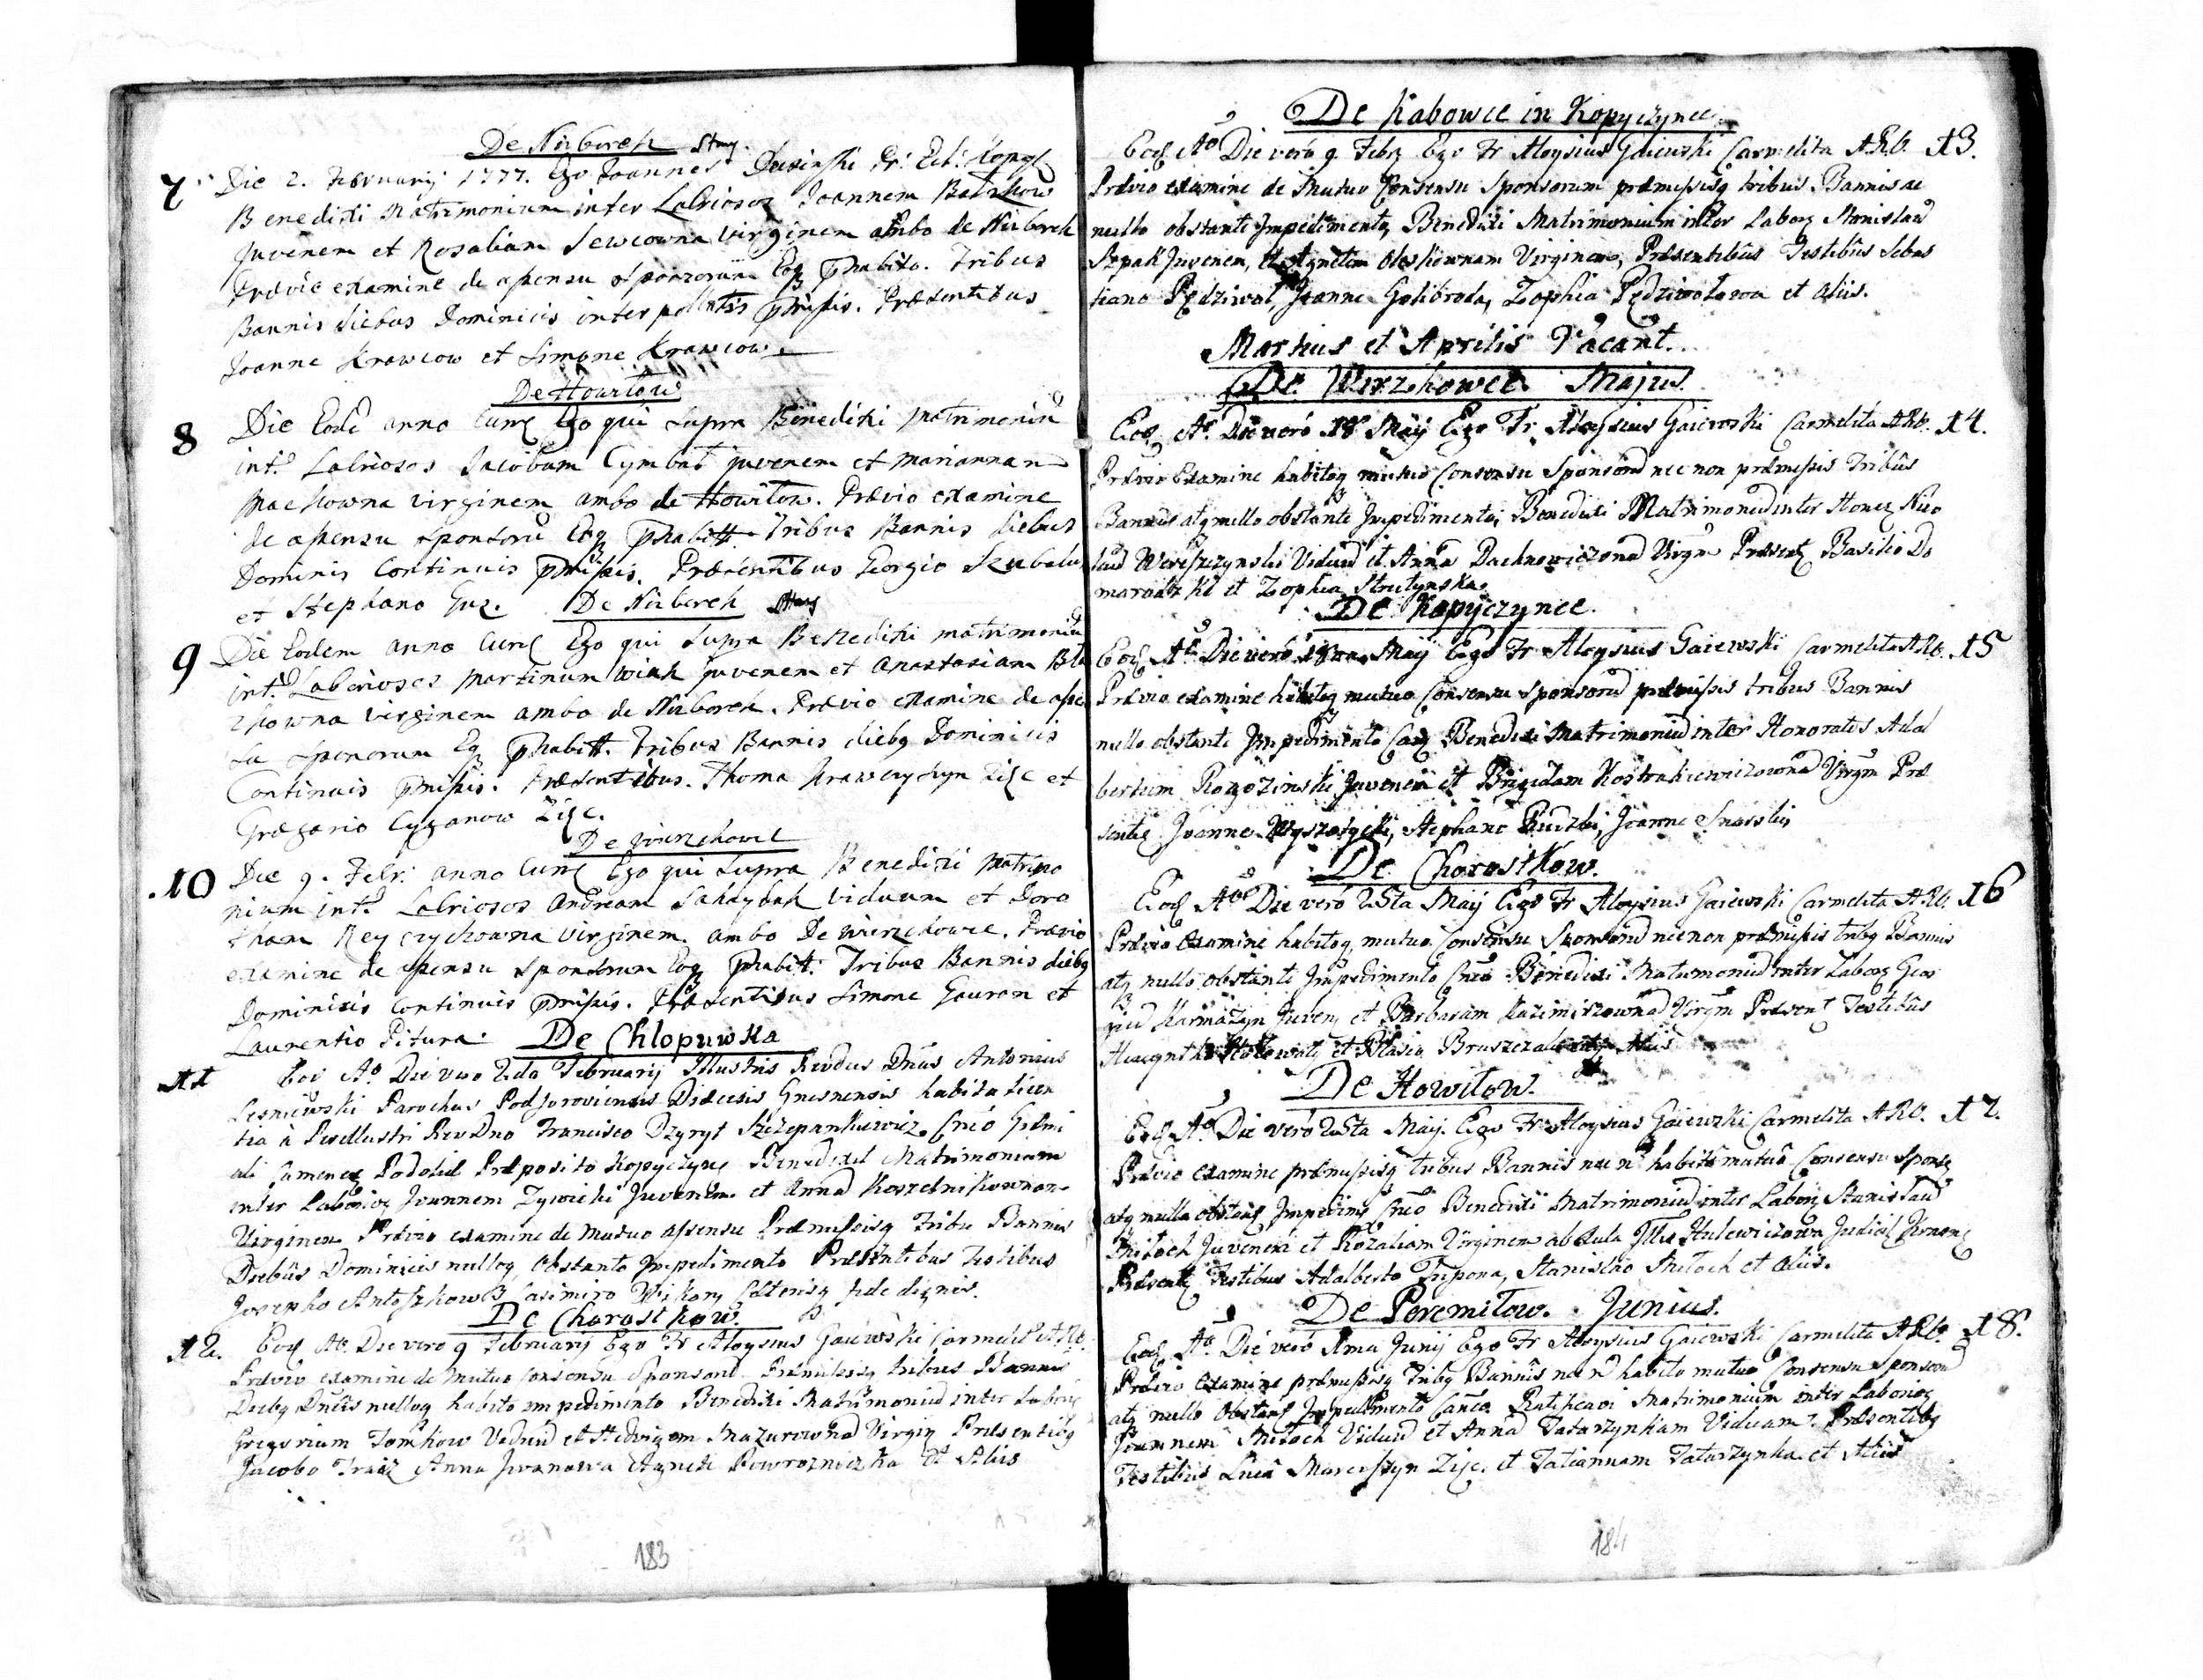 De Niżborek Stary
7 Die 2. February 1777. Ego Joannes Dusinski Pr: Ecl: Kopycz
Benedixi Matrimonium inter Labriosos Joannem
Juvenem et Rosaliam Sewcowna virginem ambo de Niżborek
Prævio examine de assensu sponsorum Eoq habito. Tribus
Bannis diebus Dominicis præmissis. Præsentibus
Joanne Krawcow et Simone Krawcow.
De Howilow
8 Die Eode anno Curre Ego qui supra Benedixi matrimoniu
int. Labriosos Jacobum Cymbał juvenem et mariannam
virginem ambo de Howilow. Prævio examine
de assensu sponsoru Eoq Tribus Bannis diebus
Dominis Continuis præmissis. Præsentibus Georgio
et Stephano Guz. De Niżborek Stary
9 Die Eodem anno Curre Ego qui supra Benedixi matrimoniu
int. Laboriosos Martinum Wiak juvenem et Anastasiam
virginem ambo de Niżborek. Prævio examine de asse
su sponorum Eq Tribus Bannis diebq Dominicis
Continuis præmissis. Præsentibus. Thoma Krawczyszyn Zięc et
Gregorio Cyganow Zięc.
De Wierzchowce
.10 Die 9. Febr: anno Curre Ego qui supra Benedixi Matrimo
nium int. Labriosos Andream Sahaydak viduum et Doro
theam virginem ambo De Wierzchowce. Prævio
examine de assensu sponsorum Eoq Tribus Bannis diebq
Dominicis Continuis præmissis. Præsentibus Simone Gauron et
Laurentio Pitura. De Chlopuwka
11 Eod Ao Die vero 2da February Illustris Revdus Dnus Antonius
Lesniewski Parochus Diecesis Gnesnensis habita licen
tia à Perillustri RevDno Francisco Dzyryt Szczepankiewicz
Præposito Kopyczync Benedixit Matrimonium
inter Laborios Joannem Zywicki Juvenem et Anna Koszelnikownam
Virginem Prævio examine de mutuo assensu Præmissisq tribu Bannis
Diebus Dominicis nulloq obstante Impedimento Præsentibus Testibus
Josepho Antoszkow Casimiro Wikary Cæterisq fide dignis.
De Chorostkow.
12. Eod Ao. Die vero 9 February Ego Fr Aloysius Gaiewski Carmelita ARO.
Prævio examine de mutuo consensu Sponsoru Præmissisq tribus Bannis
Diebq Dncis nulloq habito impedimento Benedixi Matrimoniu inter Labori
Gregorium Tomkow Viduu et Hedvigem Mazurowna Virgin Præsentibq
Jacobo Tracz Anna Jwanowa Agnete Powroznizka et Aliis
183
De Kabowce in Kopyczynce.
Eod Ao Die vero 9 Febr Ego Fr Aloysius Gaiewski Carmelita ARO. 13.
Prævio examine de Mutuo Consensu Sponsorum præmissisq tribus Bannis ac
nullo obstante Impedimento, Benedixi Matrimonium inter Labor Stanislau
Szpak Juvenem, et Agnetem Oleskiewnam Virginem, Præsentibus Testibus Sebas
tiano Pędziwol, Joanne Golibroda, Zophia Pędziwolowa et aliis.
Martius et Aprilis Vacant.
De Wierzhowce Majus.
Eod Ao. Die vero 18 Maij Ego Fr Aloysius Gaiewski Carmelita ARO. 14.
Prævio Examine habitoq mutuo Consensu Sponsoru nec non præmissis Tribus
Bannis atq nullo obstante Impedimento, Benedixi Matrimoniu inter Honor Nico
lau Wereszczynski Viduu et Anna Dachnowiczowna Virgin Præsent Basilio Do
maradzki et Zophia Strutynska.
De Kopyczynce.
Eod Ao Die vero 18va Maij Ego Fr Aloysius Gaiewski Carmelita ARO. 15
Prævio examine habitoq mutuo Consensu sponsoru præmissis tribus Bannis
nullo obstante Impedimento Benedixi Matrimoniu inter Honoratos Adal
bertum Rogozinski Juvenem et Brigidam Kostrakiewiczowna Virgm Præ
sente Joanne Wyszatycki, Stephano Rudzki, Joanne
De Chorostkow.
Eod Ao Die vero 25ta Maij Ego Fr Aloysius Gaiewski Carmelita ARO. 16
Prævio Examine habitoq mutuo Consensu Sponsoru necnon præmissis tribq Bannis
atq nullo obstante Impedimento Cnco Benedixi Matrimoniu inter Laborq Geor
giu Karmazyn Juven et Barbaram Kazimirzowna Virgm Præsent Testibus
Hiacyntho et Blasio Bruszczak atq Aliis
De Howilow.
Eod Ao Die vero 25ta Maij. Ego Fr Aloysius Gaiewski Carmelita ARO. 17.
Prævio examine præmissisq tribus Bannis nec n habito mutuo Consensu Spons
atq nullo obstant Impedimt Cnco Benedixi Matrimoniu inter Labori Stanislau
Mitoch Juvenem et Rozaliam Virginem ab Aula Illis Hulewiczowa
Præsent Testibus Adalberto Trepona, Stanislao Mitoch et aliis.
De Peremilow. Junius.
Eod Ao Die vero 1ma Junij Ego Fr Aloysius Gaiewski Carmelita ARO. 18.
Prævio Examine præmissisq Tribq Bannis nec n habito mutuo Consensu Sponsoru
atq nullo obstant Impedimento Canco Ratificavi Matrimonium inter Laborioq
Joannem Mitoch Viduu et Anna Tatarzynkam Viduam. Præsentibq
Testibus Luca Marcyszyn Zięc. et Tatiannam Tatarzynka et Aliis
184